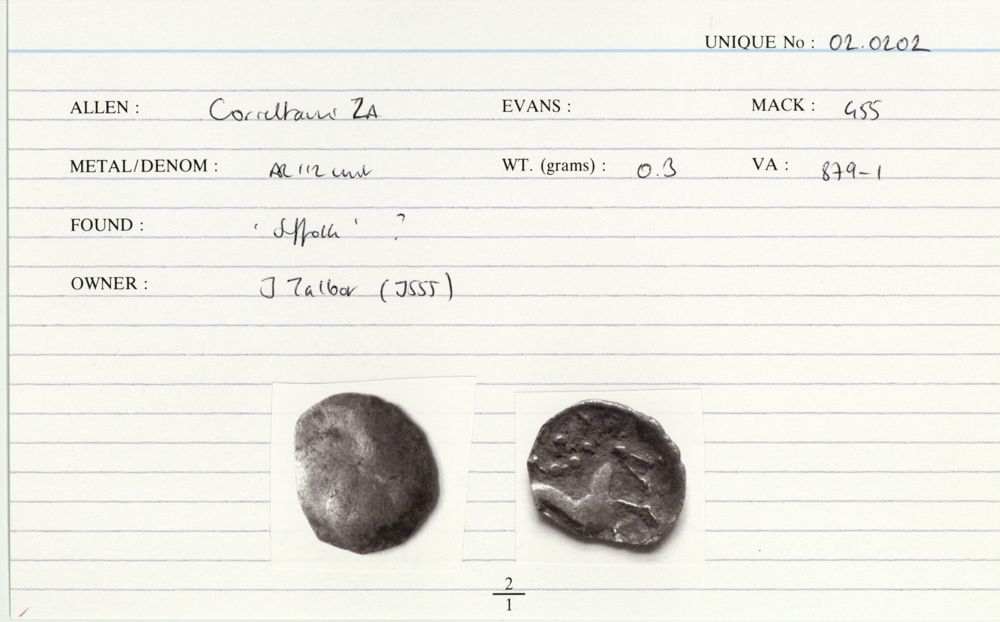 UNIQUE No : 02.0202
ALLEN : Corieltauvi ZA EVANS : MACK : 455
METAL/DENOM : AR 1/2 unit WT. (grams) : 0.3 VA : 879-1
FOUND : 'Suffolk' ?
OWNER : J Talbot (J555)
2
1